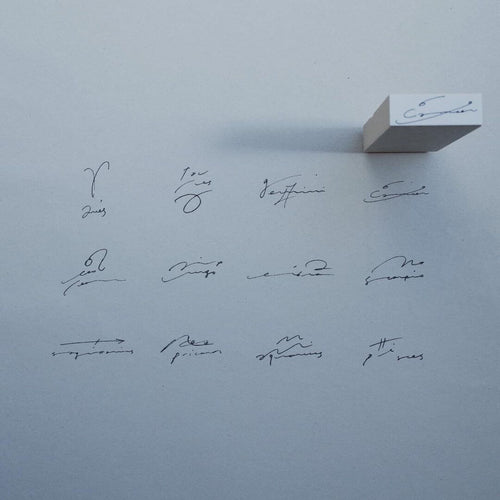 Cancer
aries
Tau
rus
gemini
Cancer
leo
virgo
libra
scorpio
sagittarius
pricorn
aquarius
pisces